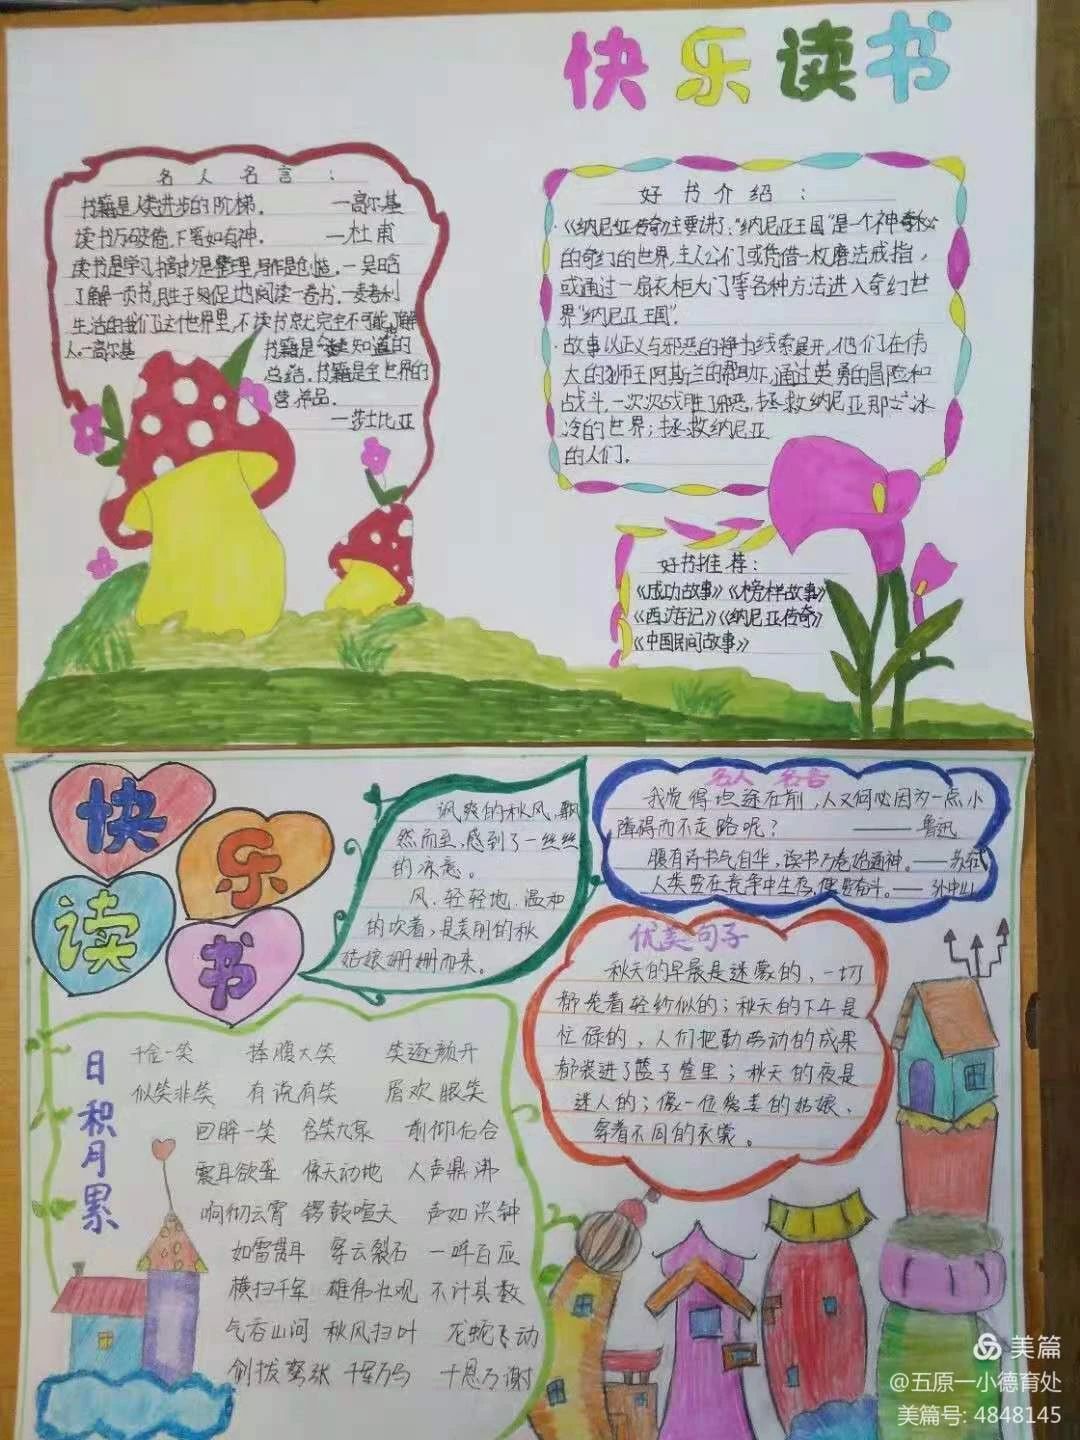 快乐读书
名人名言：
书籍是人类进步的阶梯. —高尔基
读书万破卷,下笔如有神. —杜甫
读书是学习,摘抄是整理,写作是创造.—吴晗
了解一页书,胜于匆促地阅读一卷书.—麦考利
生活在我们这个世界里,不读书就完全不可能了解
人.—高尔基
书籍是知道的
总结.书籍是全世界的
营养品.
—莎士比亚
好书介绍：
·《纳尼亚传奇》主要讲了:“纳尼亚王国”是一个神奇秘
的奇幻的世界,主人公们或凭借一枚魔法戒指,
或通过一扇衣柜大门等各种方法进入奇幻世
界“纳尼亚王国”.
·故事以正义与邪恶的争为线索展开,他们在伟
大的狮王阿斯兰的帮助下,通过英勇的冒险和
战斗,一次次战胜了邪恶,拯救纳尼亚那个冰
冷的世界;拯救纳尼亚
的人们.
好书推荐：
《成功故事》《榜样故事》
《西游记》《纳尼亚传奇》
《中国民间故事》
快乐读书
飒爽的秋风,飘
然而至,感到了一丝丝
的凉意。
风,轻轻地,温和
的吹着,是美丽的秋
姑娘姗姗而来。
名人名言
我觉得坦途在前,人又何必因为一点小
障碍而不走路呢? ——鲁迅
腹有诗书气自华,读书万卷始通神。——苏轼
人类要在竞争中生存,便要奋斗。——孙中山
优美句子
秋天的早晨是迷蒙的,一切
都凭着轻纱似的;秋天的下午是
忙碌的,人们把勤劳动的成果
都装进了篮子筐里;秋天的夜是
迷人的;像一位爱美的姑娘、
穿着不同的衣裳。
日积月累
千金一笑 捧腹大笑 笑逐颜开
似笑非笑 有说有笑 眉欢眼笑
回眸一笑 含笑九泉 前仰后合
震耳欲聋 惊天动地 人声鼎沸
响彻云霄 锣鼓喧天 声如洪钟
如雷贯耳 穿云裂石 一呼百应
横扫千军 雄伟壮观 不计其数
气吞山河 秋风扫叶 龙蛇飞动
剑拔弩张 千军万马 千恩万谢
美篇
@五原一小德育处
美篇号: 4848145